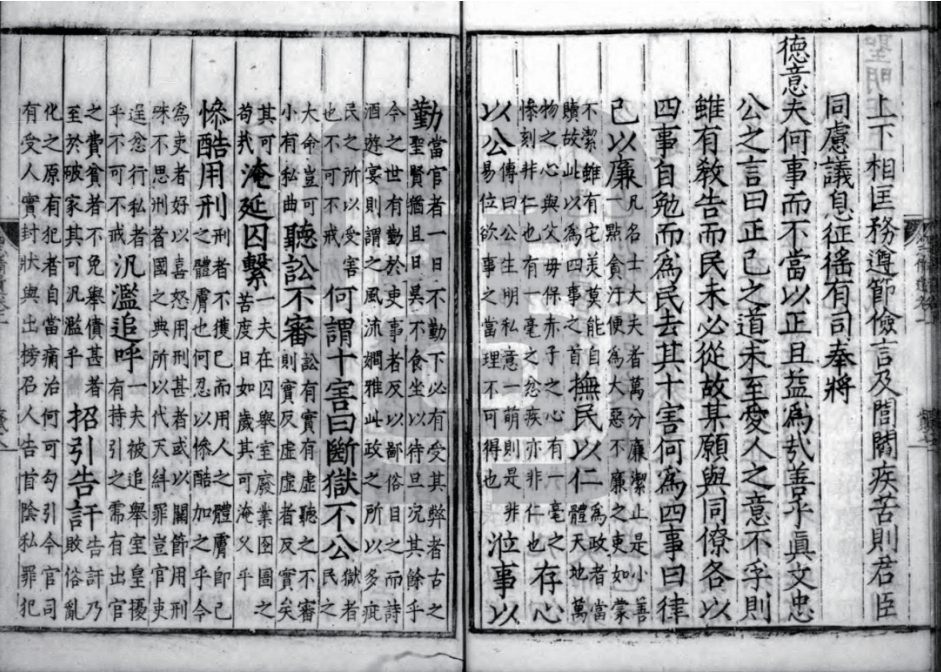 上下相匡務遵節儉言及閭閻疾苦則君臣
同慮議息征徭有司奉將
德意夫何事而不當以正且益爲㢤善乎眞文忠
公之言曰正己之道未至愛人之意不孚則
雖有敎告而民未必從故某願與同僚各以
四事自勉而爲民去其十害何爲四事曰律
己以廉凡名士大夫者萬分廉潔止是小善
一點貪汙便爲大惡不廉之吏如蒙
不潔雖有它美莫能自
贖故此以爲四事之首撫民以仁爲政者當
體天地萬
物之心與父母保赤子之心有一毫之
慘刻非仁也有一毫之忿疾亦非仁也存心
以公傳曰公生明私意一萌則是非
易位欲事之當理不可得也涖事以
勤當官者一日不勤下必有受其弊者古之
聖賢猶且日昃不食坐以待旦况其餘乎
今之世有勤於吏事者反以鄙俗目之而詩
酒遊宴則謂之風流嫺雅此政之所以多疵
民之所以受害
也不可不戒何謂十害曰斷獄不公獄者
民之
大命豈可
小有私曲聽訟不審訟有實有虛聽之不審
則實反虛虛者反實矣
其可
苟㢤淹延囚繫一夫在囚舉室廢業囹圄之
苦度日如歲其可淹久乎
慘酷用刑刑者不獲已而用人之體膚即己
之體膚也何忍以慘酷加之乎今
爲吏者好以喜怒用刑甚者或以關節用刑
殊不思刑者國之典所以代天糾罪豈官吏
逞忿行私者
乎不可不戒汎濫追呼一夫被追舉室皇擾
有持引之需有出官
之費貧者不免舉債甚者
至於破家其可汎濫乎招引告訐告訐乃
敗俗亂
化之原有犯者自當痛治何可勾引今官司
有受人實封狀與出榜召人告首陰私罪犯